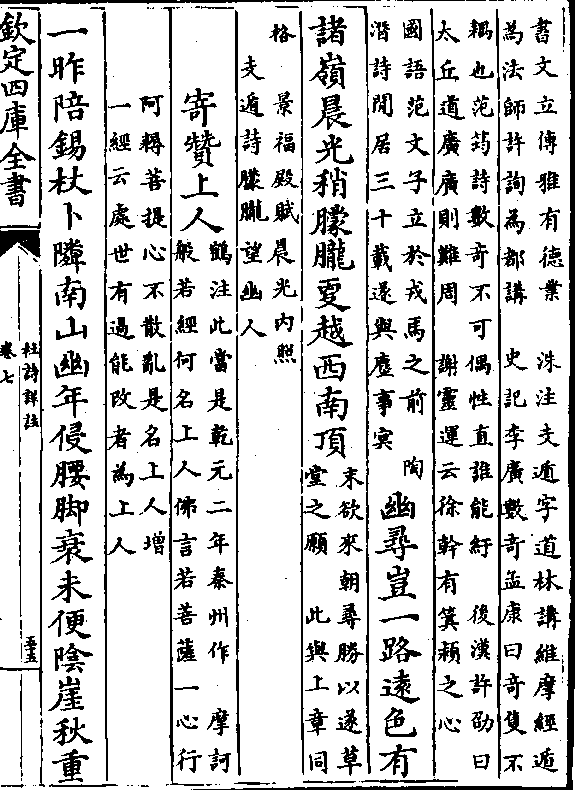 書文立傳雅有德業　洙注支遁字道林講維摩經遁
為法師許詢為都講　史記李廣數奇孟康曰奇隻不
耦也范筠詩數奇不可偶性直誰能紆　後漢許劭曰
太丘道廣廣則難周　謝靈運云徐幹有箕潁之心
國語范文子立於戎馬之前　陶
潛詩閒居三十載遂與塵事冥
幽尋豈一路遠色有
諸嶺晨光稍朦朧更越西南頂
末欲來朝尋勝以遂草
堂之願　此與上章同
格　景福殿賦晨光内照
支遁詩朦朧望幽人
寄贊上人
鶴注此當是乾元二年秦州作　摩訶
般若經何名上人佛言若菩薩一心行
阿耨菩提心不散亂是名上人增
一經云處世有過能改者為上人
一昨陪錫杖卜隣南山幽年侵腰脚衰未便陰崖秋重
欽定四庫全書
杜詩詳註
卷七